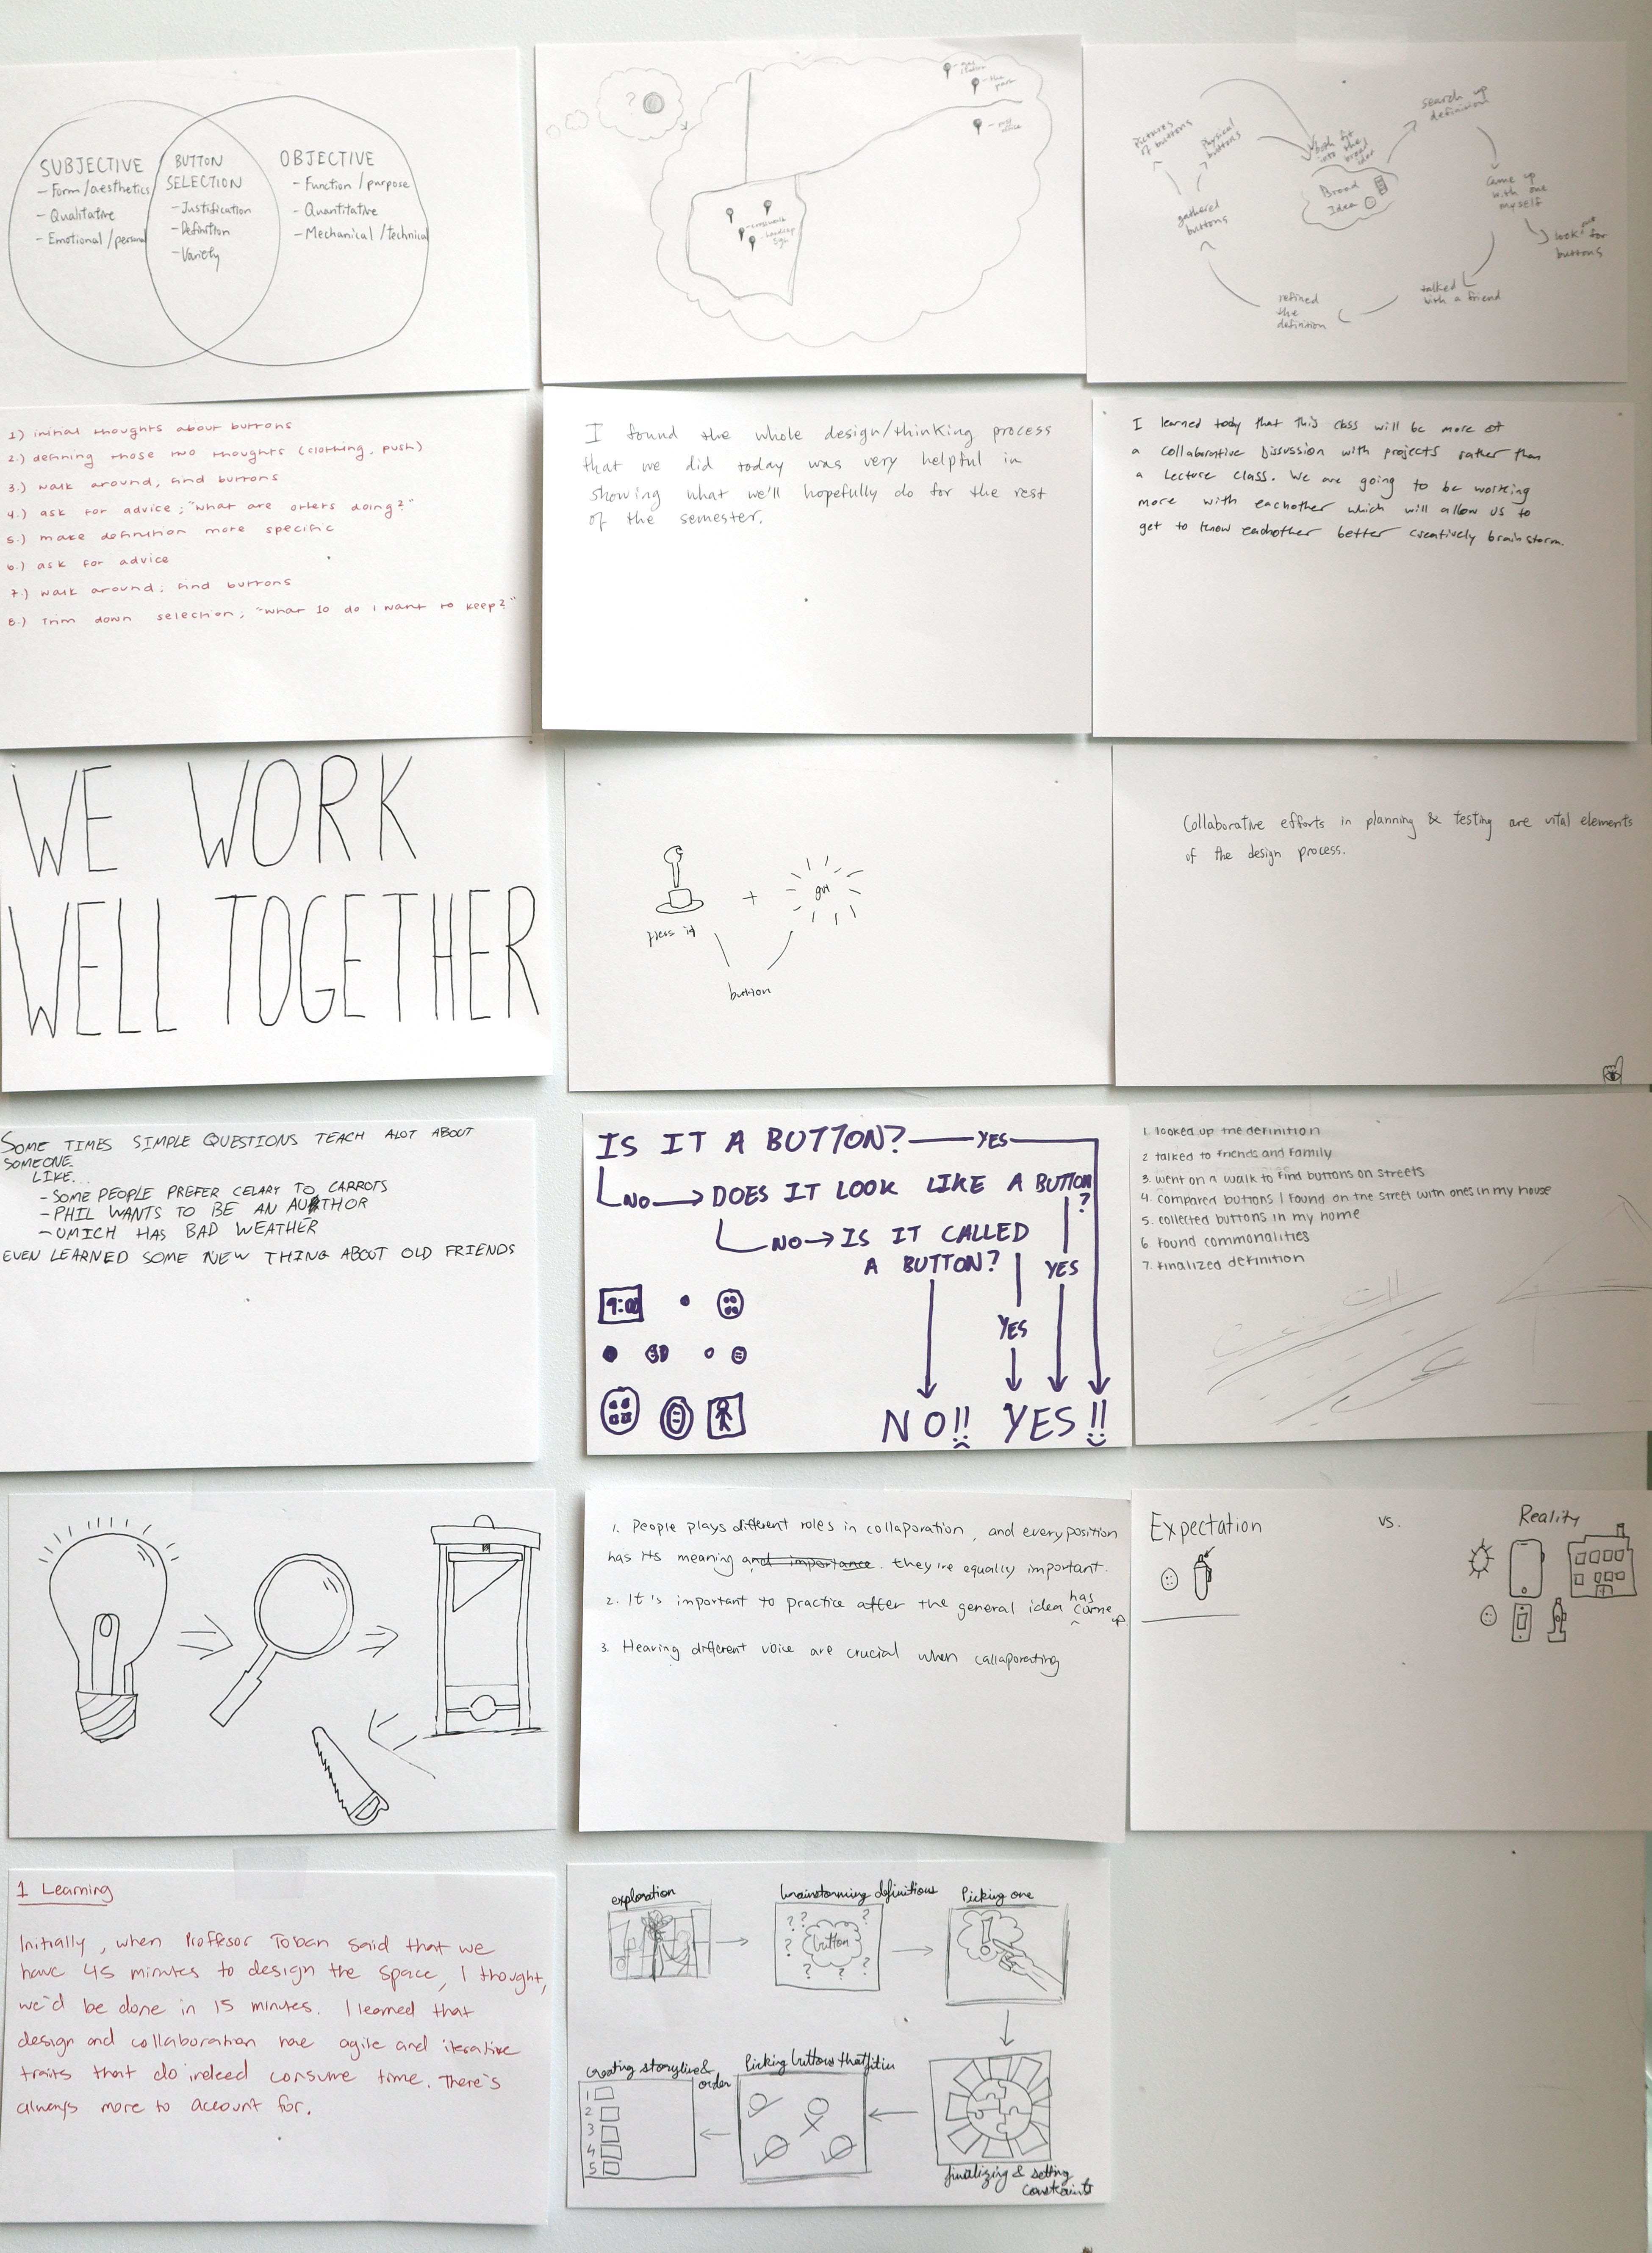 SUBJECTIVE
- Form/aesthetics
- Qualitative
- Emotional/personal
BUTTON
SELECTION
- Justification
- Definition
- Variety
OBJECTIVE
- Function/purpose
- Quantitative
- Mechanical/technical
?
- crosswalk
- my office
search up
definition
came up
with one
myself
look out for
buttons
talked
with a friend
refined
the
definition
gathered
buttons
pictures
of buttons
physical
buttons
both fit
into the broad
idea
Broad
Idea
1) initial thoughts about buttons
2.) defining those two thoughts (clothing, push)
3.) walk around, find buttons
4.) ask for advice; "what are others doing?"
5.) make definition more specific
6.) ask for advice
7.) walk around; find buttons
8.) Trim down selection; "what 10 do I want to keep?"
I found the whole design/thinking process
that we did today was very helpful in
showing what we'll hopefully do for the rest
of the semester.
I learned today that this class will be more of
a collaborative Discussion with projects rather than
a Lecture class. We are going to be working
more with eachother which will allow us to
get to know eachother better creatively brainstorm.
WE WORK
WELL TOGETHER
press it
+
button
Collaborative efforts in planning & testing are vital elements
of the design process.
SOME TIMES SIMPLE QUESTIONS TEACH ALOT ABOUT
SOMEONE.
LIKE...
- SOME PEOPLE PREFER CELARY TO CARROTS
- PHIL WANTS TO BE AN AUTHOR
- UMICH HAS BAD WEATHER
EVEN LEARNED SOME NEW THING ABOUT OLD FRIENDS
IS IT A BUTTON? YES
NO DOES IT LOOK LIKE A BUTTON
?
NO IS IT CALLED
A BUTTON? YES
YES
9:00
NO!! YES!!
1. looked up the definition
2 talked to friends and family
3. went on a walk to find buttons on streets
4. compared buttons I found on the street with ones in my house
5. collected buttons in my home
6. found commonalities
7. finalized definition
1. People plays different roles in collaporation, and every position
has its meaning and importance. they're equally important.
2. It's important to practice after the general idea has come up.
3. Hearing different voice are crucial when callaporating
Expectation
vs.
Reality
1 Learning
Initially, when Proffesor Toban said that we
have 45 minutes to design the space, I thought,
we'd be done in 15 minutes. I learned that
design and collaboration have agile and iterative
traits that do indeed consume time. There's
always more to account for.
exploration
brainstorming definitions
? ? ? button ? ? ? ?
Picking one
finalizing & setting
constraints
Picking buttons that fit in
creating storyline &
order
1
2
3
4
5